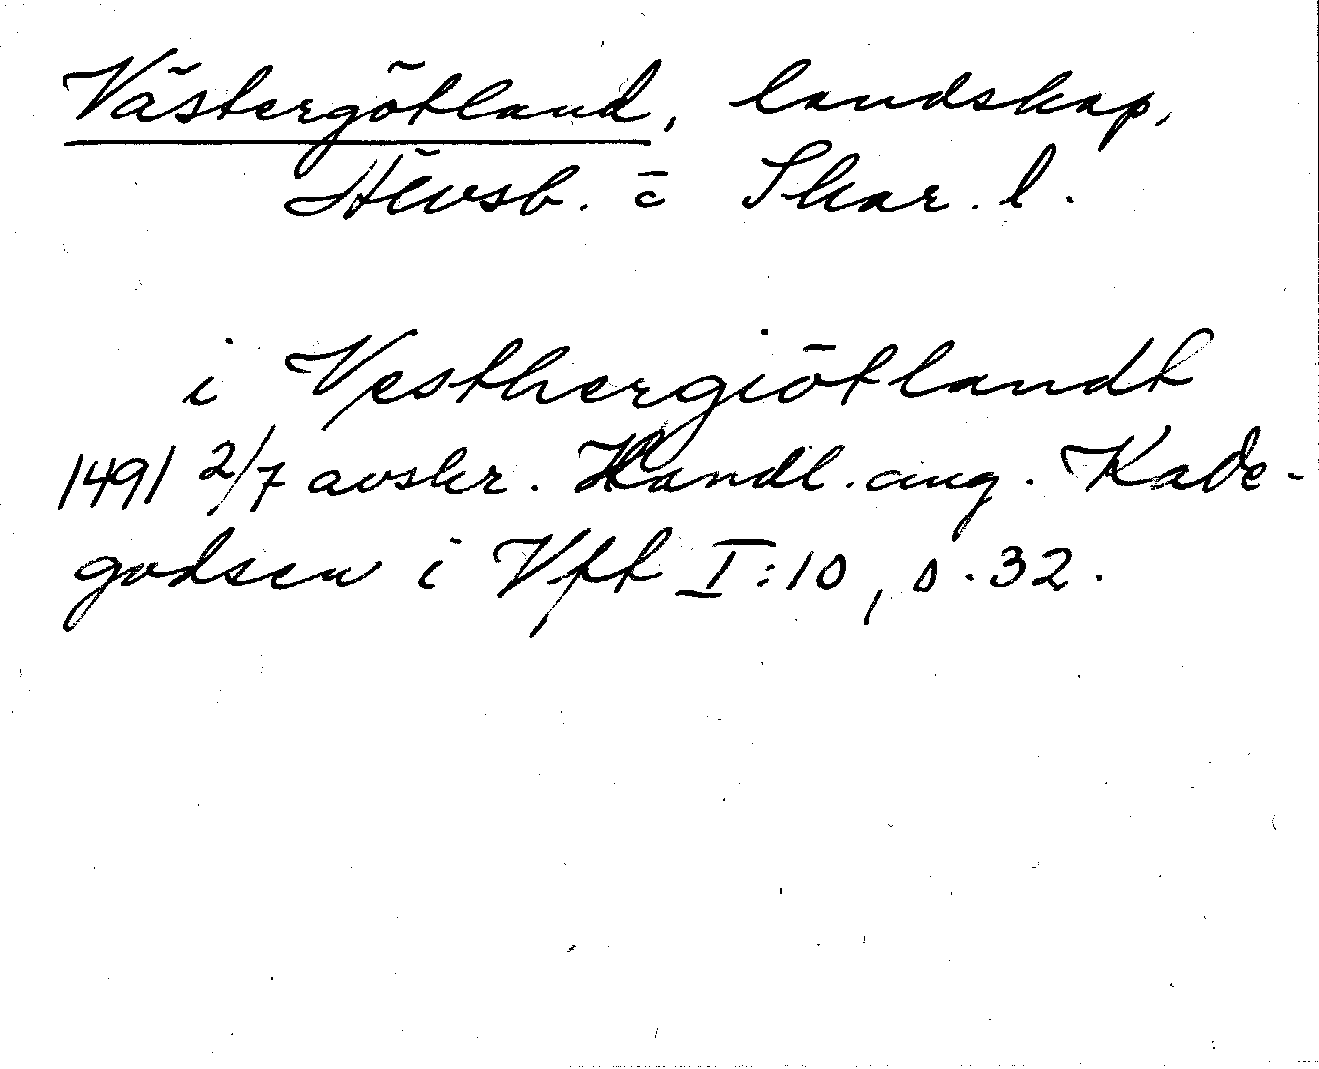 Västergötland, landskap,
Älvsb. o Skar. l.
i Vesthergiötlandt
1491 2/7 avskr. Handl. ang. Kade-
godsen i Vft I:10, s. 32.